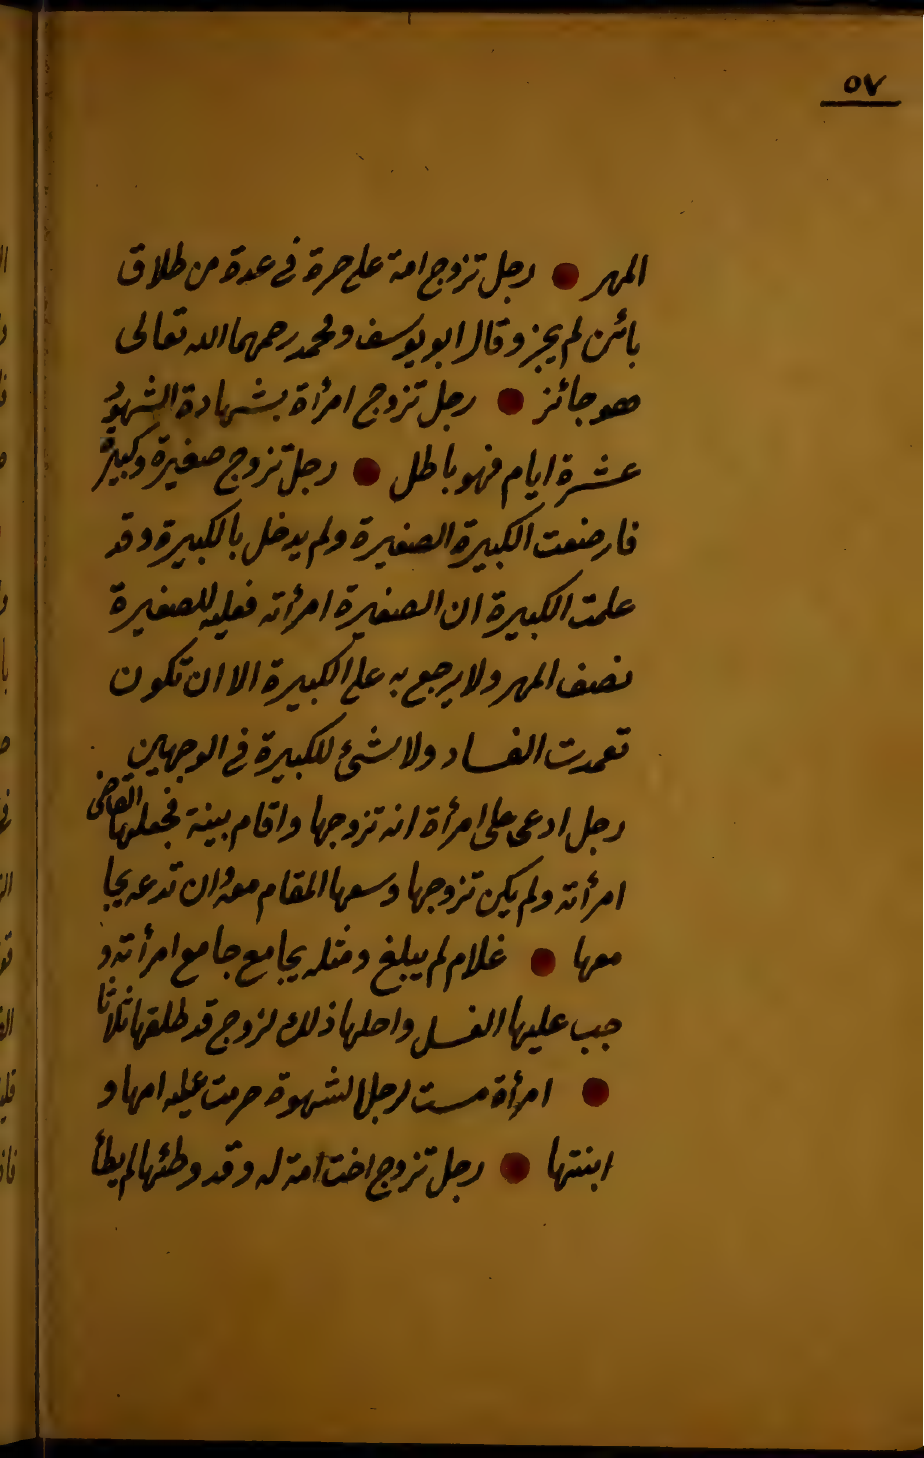 ٥٧
المهر ● رجل تزوج امة على حرة فى عدة من طلاق
بائن لم يجز وقال ابو يوسف ومحمد رحمهما الله تعالى
هو جائز ● رجل تزوج امرأة بشهادة الشهود
عشرة ايام فهو باطل ● رجل تزوج صغيرة وكبيرة
فارضعت الكبيرة الصغيرة ولم يدخل بالكبيرة وقد
علمت الكبيرة ان الصغيرة امرأته فعليه للصغيرة
نصف المهر ولا يرجع به على الكبيرة الا ان تكون
تعمدت الفساد ولا شئ للكبيرة فى الوجهين
رجل ادعى على امرأة انه تزوجها واقام بينة فجعلها القاضى
امرأته ولم يكن تزوجها وسعها المقام معه وان تدعه يجا
معها ● غلام لم يبلغ ومثله يجامع جامع امرأته و
جب عليها الغسل واحلها ذلك لزوج قد طلقها ثلاثا
● امرأة مست رجل لشهوة حرمت عليه امها و
ابنتها ● رجل تزوج اخت امة له وقد وطئها لم يطأ